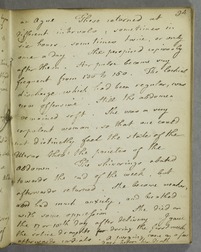 94
an Ague. These returned at
different intervals, sometimes in
six hours sometimes twice, or only
once a day. She perspired copiously
after them. Her pulse became very
frequent from 120 to 150. The lochial
discharge which had been regular, was
very offensive. Still the abdomen
remained soft. She was a very
corpulent woman, so that we could
not distinctly feel the state of the
Uterus thro' the parietes of the
abdomen. The shiverings abated
towards the end of the week, but
afterwards returned. She became weaker,
had much anxiety, and breathed
with some oppression. She died on
the after delivery. I gave
the saline draughts for during the first week
afterwards